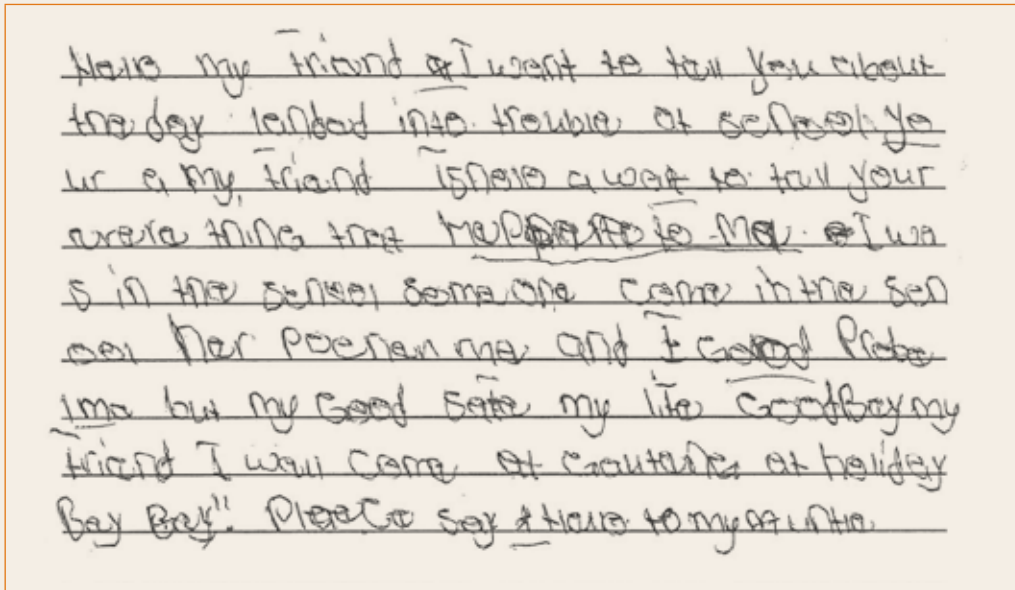 Hello my friend I want to tall you about
the day landad into trouble at school. yo
ur a my friend is hele a want to tall your
avere thing that to Me. I wa
s in the school some one came in the sch
ool her me and I Good Probe
ime but my Good safe my life GoodBay my
friend I wall came at at holiday
Bay Bay". Pleace say Hello to my auntie